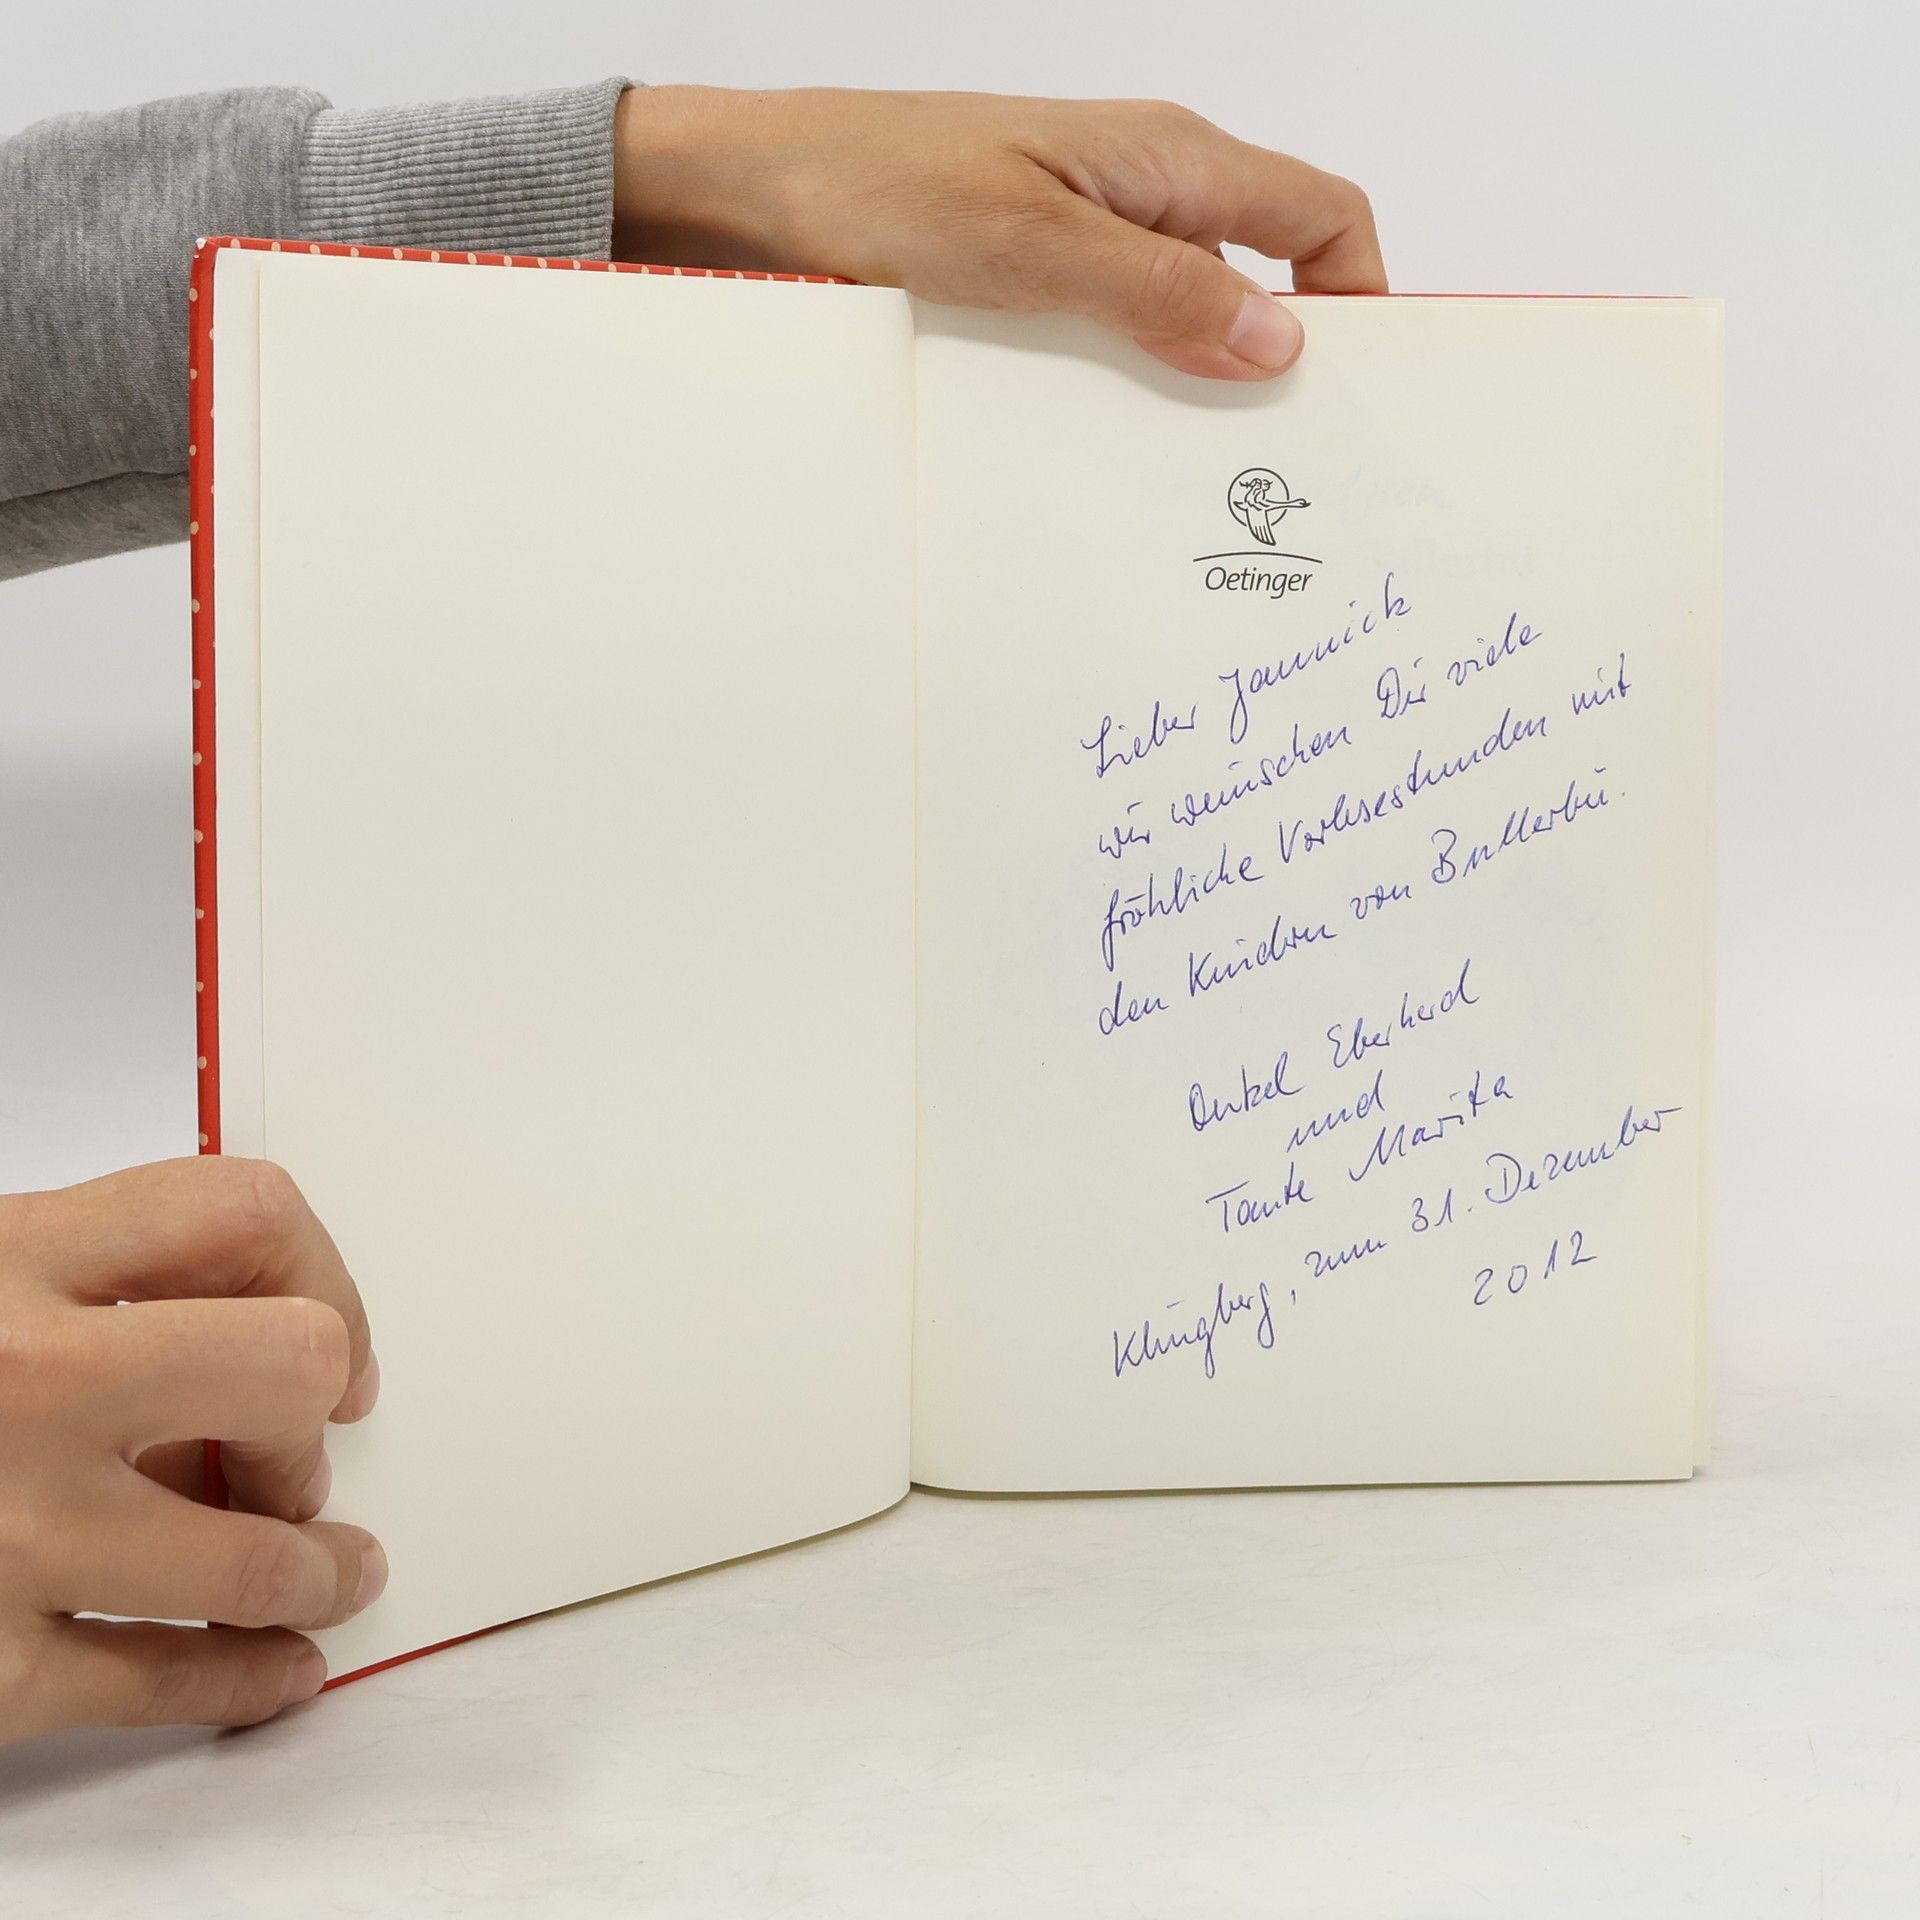 Oetinger
Lieber Jannick
wir wünschen Dir viele
fröhliche Vorlesestunden mit
den Kindern von Bullerbü.
Onkel Eberhard
und
Tante Marita
Klingberg, zum 31. Dezember
2012